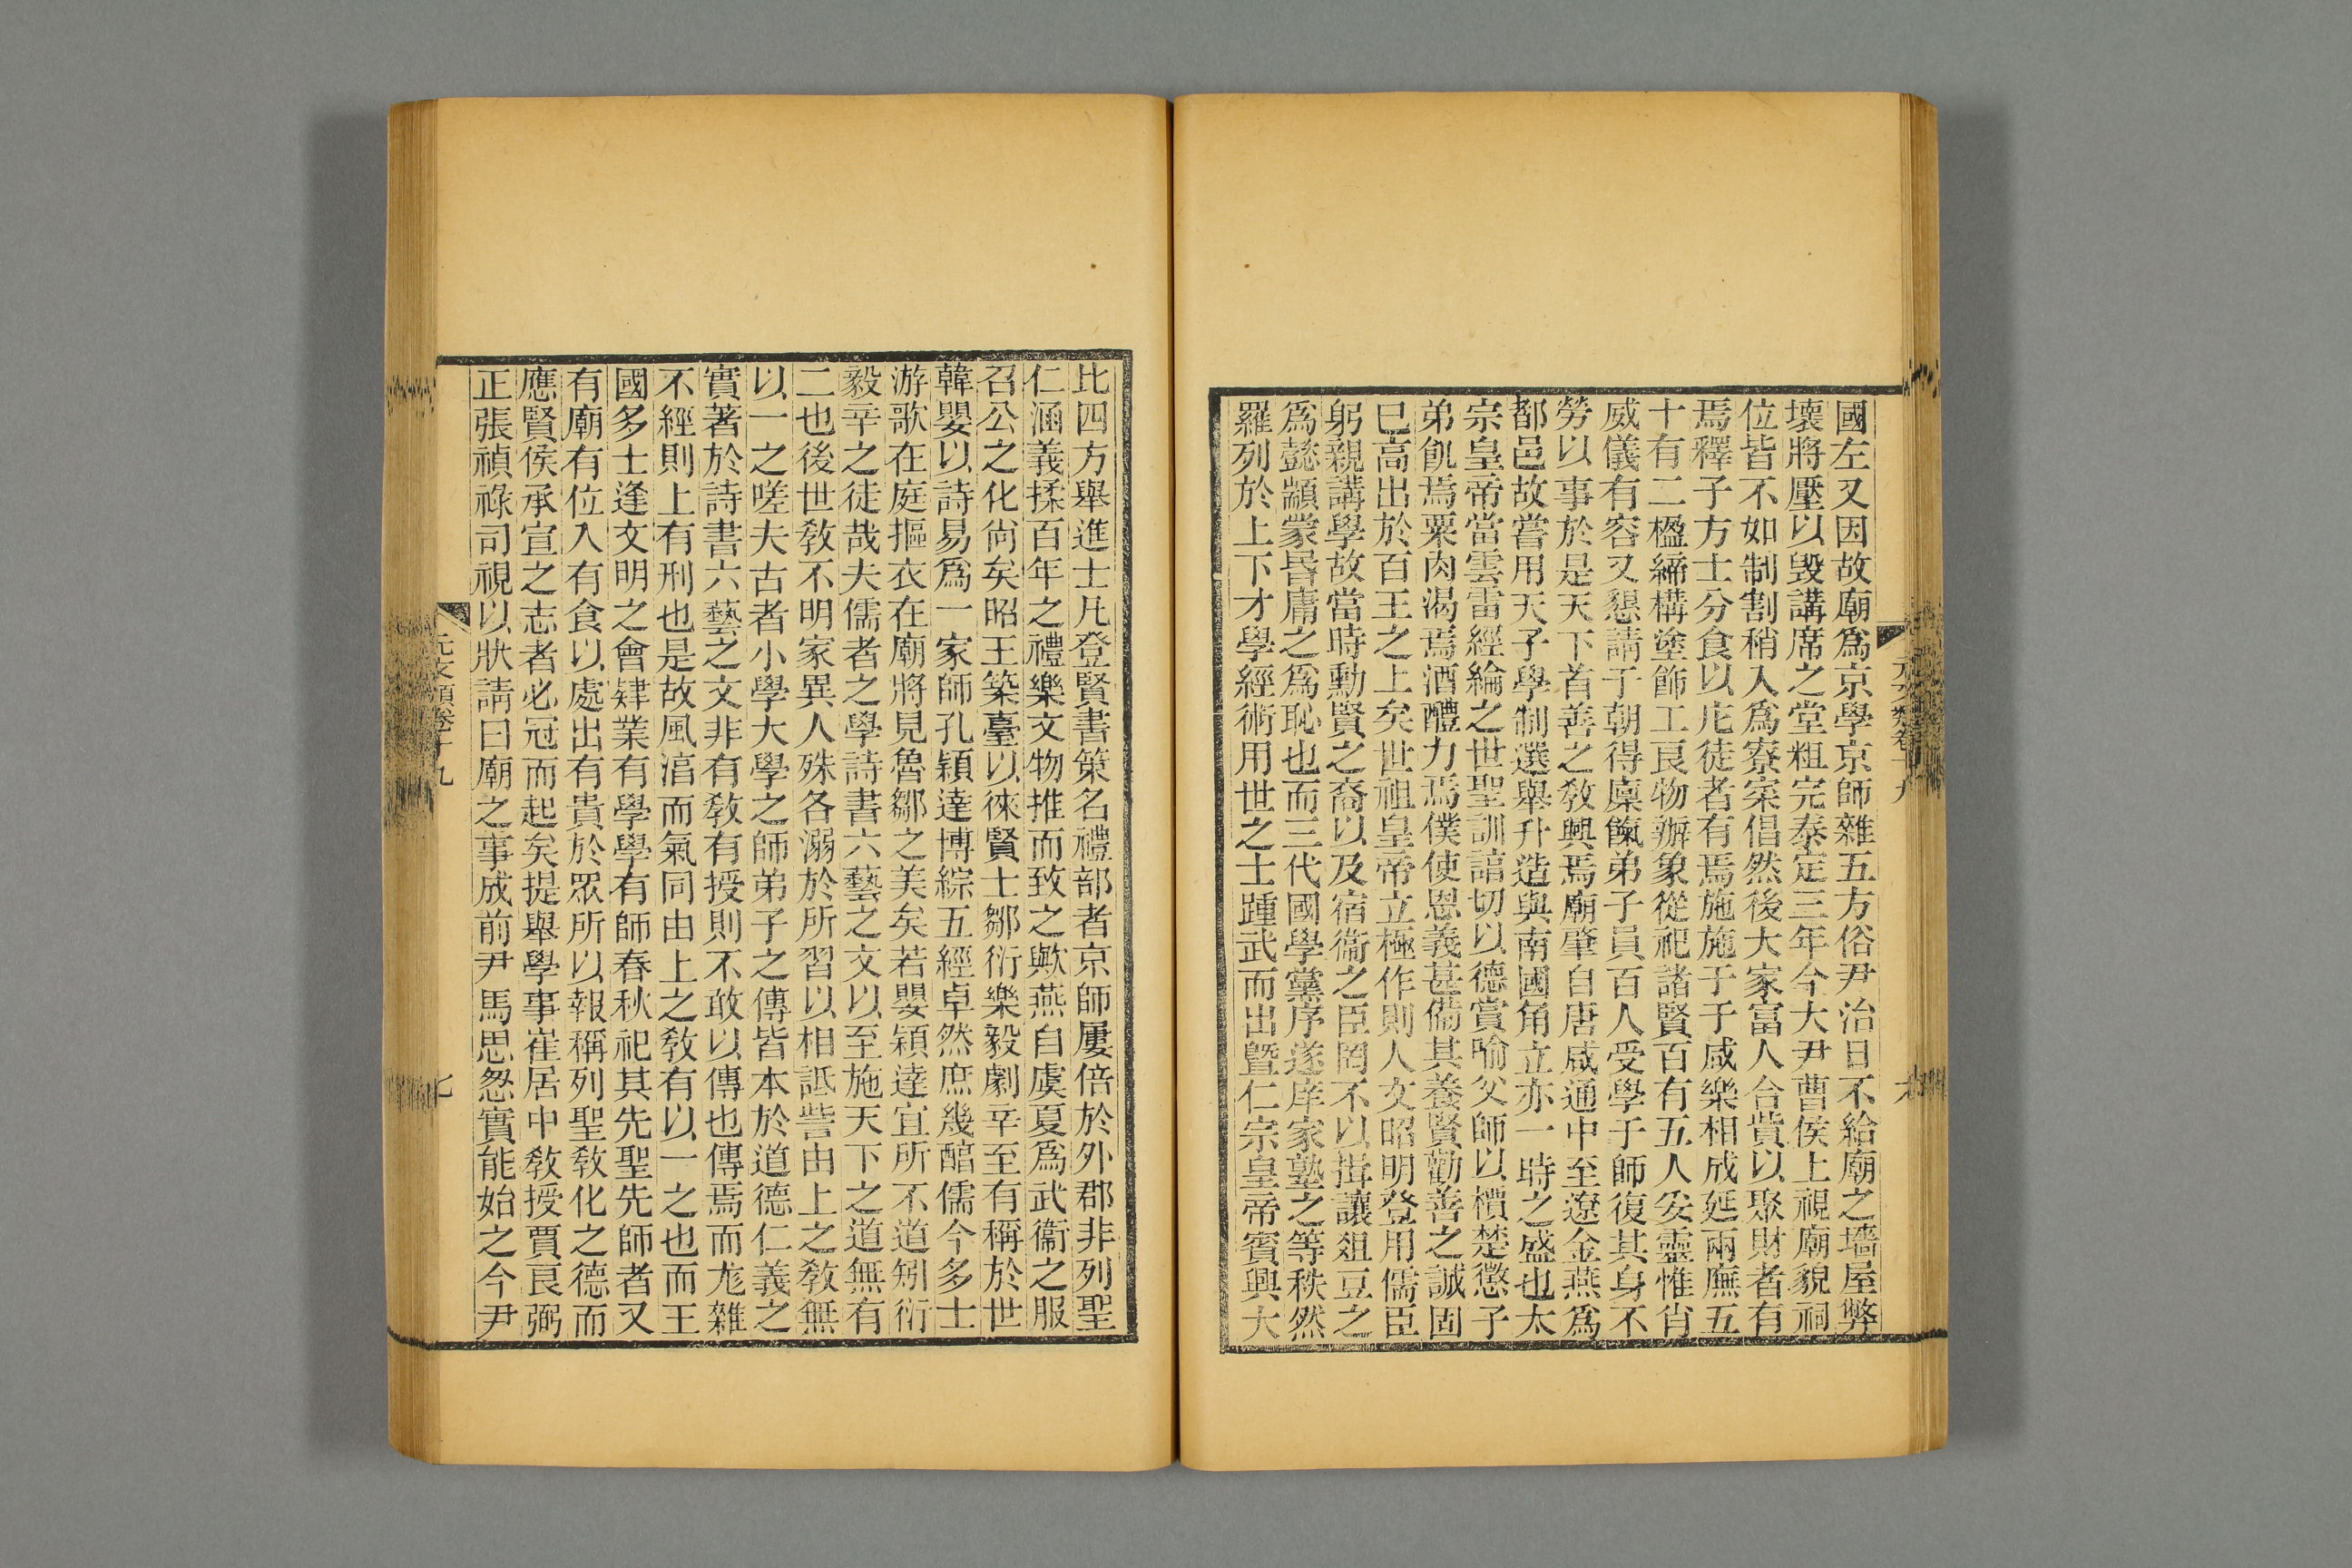 國左又因故廟爲京學京師雜五方俗尹治日不給廟之墻屋弊
壞將壓以毀講席之堂粗完泰定三年今大尹曹侯上視廟貌祠
位皆不如制割稍入爲寮寀倡然後大家富人合貲以聚財者有
焉釋子方士分食以庀徒者有焉施施于于咸樂相成延兩廡五
十有二楹締構塗飾工良物辦象從祀諸賢百有五人妥靈惟肖
威儀有容又懇請于朝得廩餼弟子員百人受學于師復其身不
勞以事於是天下首善之敎興焉廟肇自唐咸通中至遼金燕爲
都邑故嘗用天子學制選舉升造與南國角立亦一時之盛也太
宗皇帝當雲雷經綸之世聖訓諄切以德賞喻父師以檟楚懲子
弟飢焉粟肉渴焉酒醴力焉僕使恩義甚備其養賢勸善之誠固
已高出於百王之上矣世祖皇帝立極作則人文昭明登用儒臣
躬親講學故當時勳賢之裔以及宿衞之臣罔不以揖讓俎豆之
爲懿顓蒙昬庸之爲恥也而三代國學黨序遂庠家塾之等秩然
羅列於上下才學經術用世之士踵武而出曁仁宗皇帝賓興大
元文類卷十九
六
比四方舉進士凡登賢書策名禮部者京師屢倍於外郡非列聖
仁涵義揉百年之禮樂文物推而致之歟燕自虞夏爲武衞之服
召公之化尙矣昭王築臺以徠賢士鄒衍樂毅劇辛至有稱於世
韓嬰以詩易爲一家師孔穎達博綜五經卓然庶幾醇儒今多士
游歌在庭摳衣在廟將見魯鄒之美矣若嬰穎達宜所不道矧衍
毅辛之徒哉夫儒者之學詩書六藝之文以至施天下之道無有
二也後世敎不明家異人殊各溺於所習以相詆訾由上之敎無
以一之嗟夫古者小學大學之師弟子之傳皆本於道德仁義之
實著於詩書六藝之文非有敎有授則不敢以傳也傳焉而尨雜
不經則上有刑也是故風淯而氣同由上之敎有以一之也而王
國多士逢文明之會肄業有學學有師春秋祀其先聖先師者又
有廟有位入有食以處出有貴於眾所以報稱列聖敎化之德而
應賢侯承宣之志者必冠而起矣提舉學事崔居中敎授賈良弼
正張禎祿司視以狀請曰廟之事成前尹馬思忽實能始之今尹
元文類卷十九
七